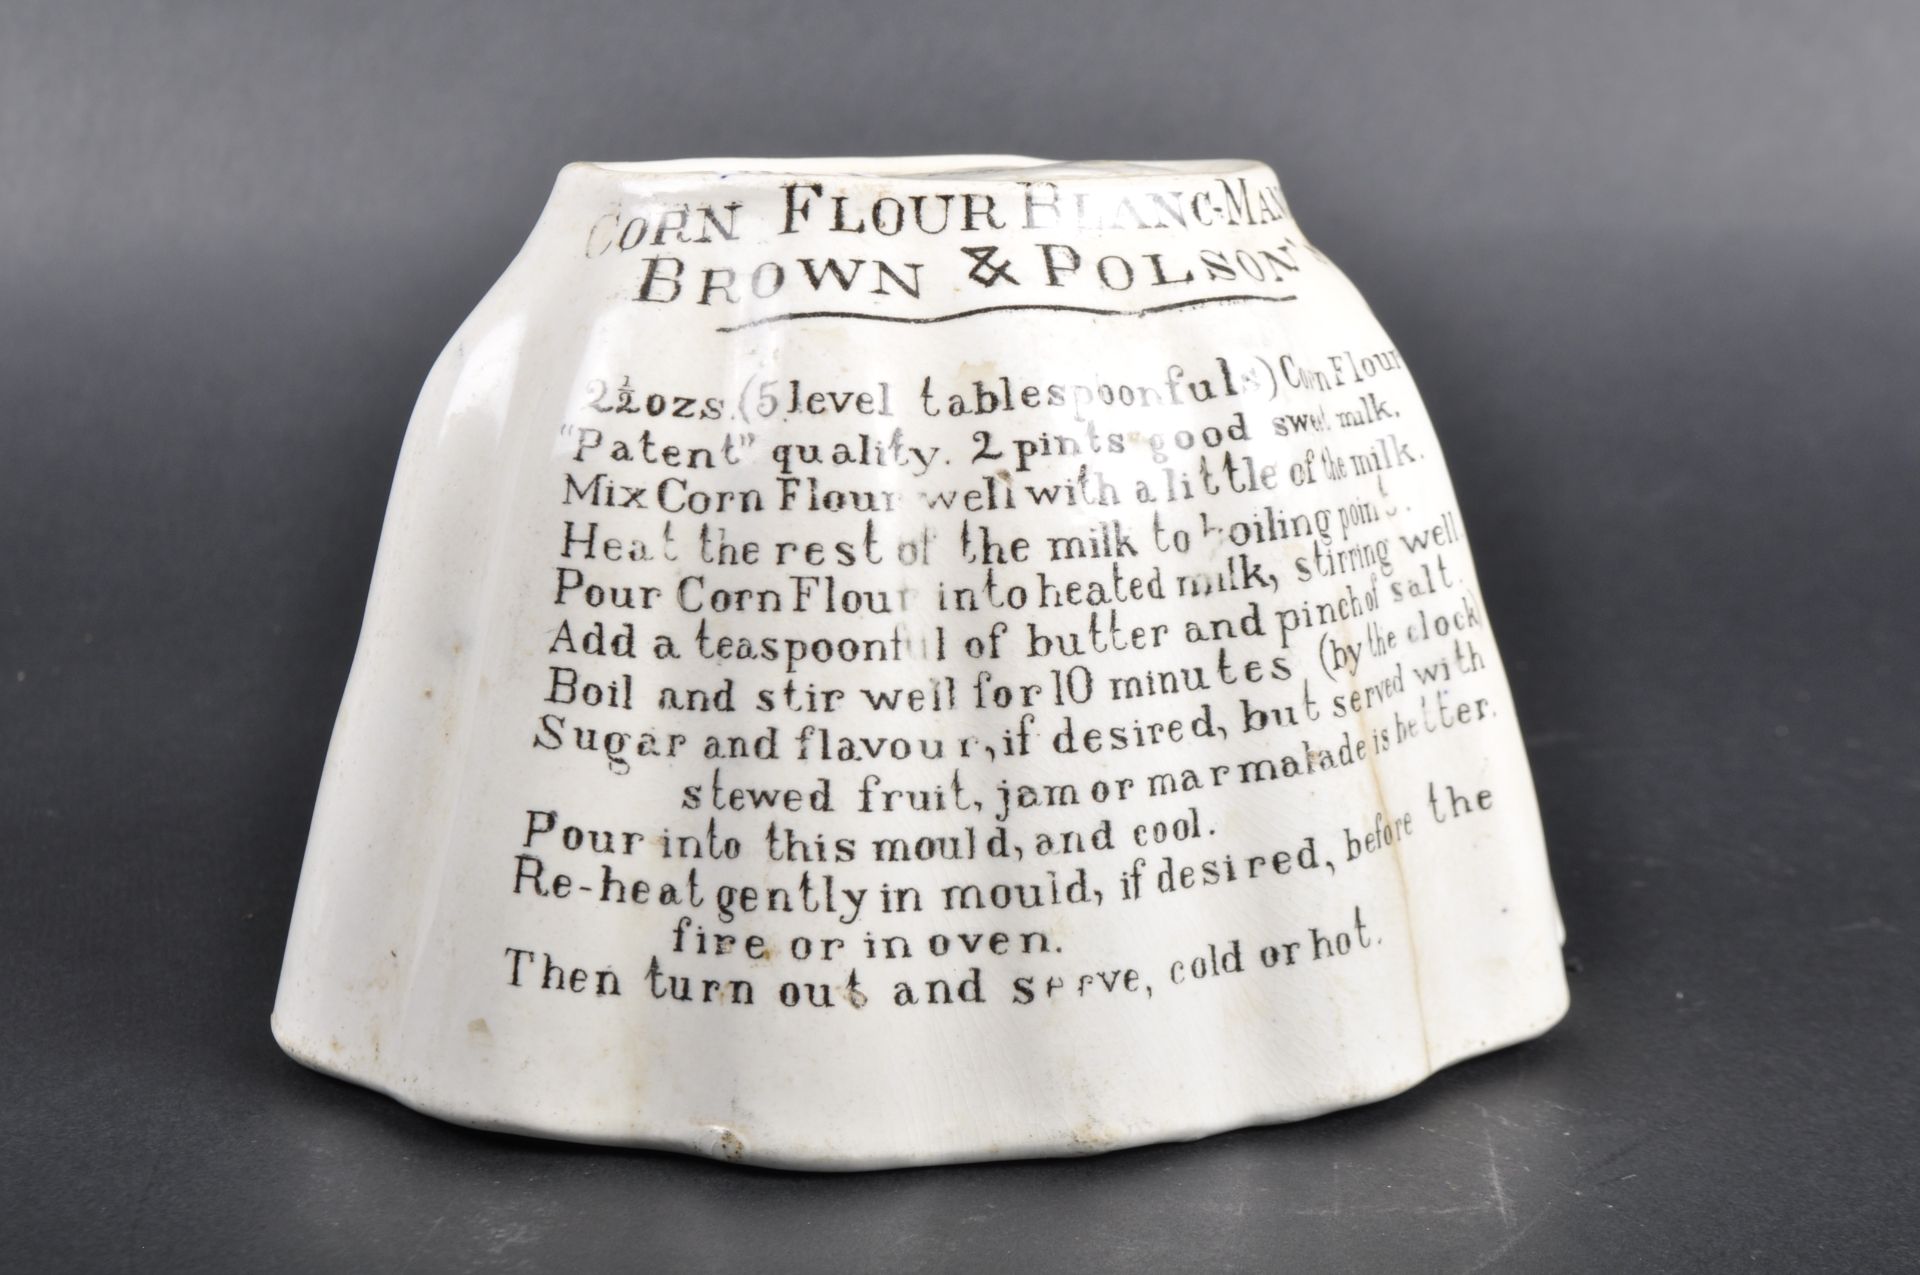 CORN FLOUR BLANC-MAN
BROWN & POLSON'S
2½ozs. (5 level tablespoonfuls) Corn Flour
"Patent" quality. 2 pints good sweet milk.
Mix Corn Flour well with a little of the milk.
Heat the rest of the milk to boiling point.
Pour Corn Flour into heated milk, stirring well.
Add a teaspoonful of butter and pinch of salt.
Boil and stir well for 10 minutes (by the clock)
Sugar and flavour, if desired, but served with
stewed fruit, jam or marmalade is better.
Pour into this mould, and cool.
Re-heat gently in mould, if desired, before the
fire or in oven.
Then turn out and serve, cold or hot.